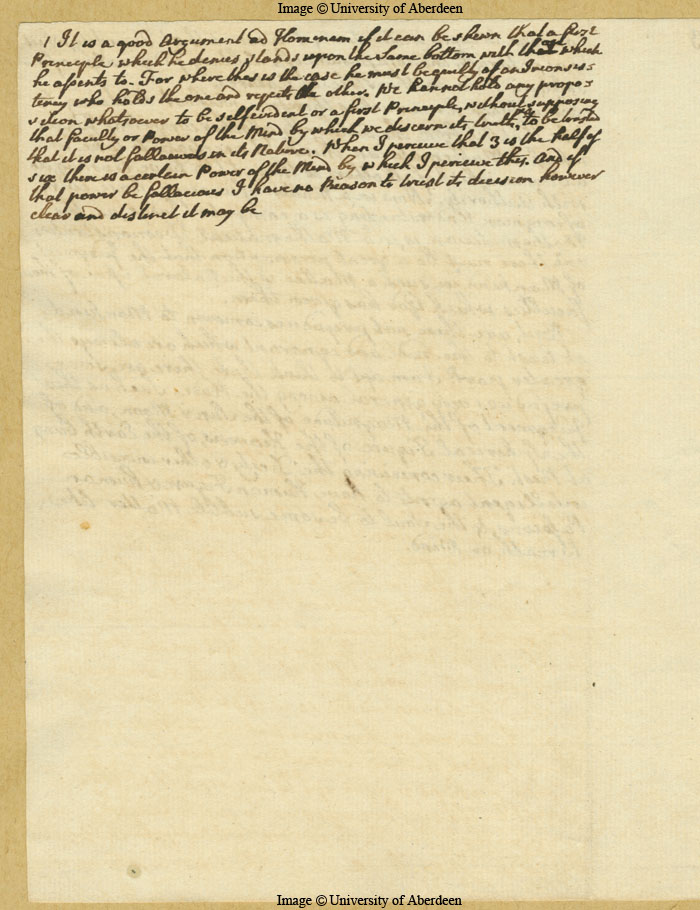 Image © University of Aberdeen
1 It is a good Argument ad Hominem if it can be shewn that a first
Principle which he denies stands upon the same bottom with that which
he assents to. For where this is the case he must be guilty of an Inconsis-
tency who holds the one and rejects the other. We cannot hold any propo-
sition whatsoever to be selfevident or a first Principle, without supposing
that faculty or Power of the Mind by which we discern its truth, to be trusted
that it is not fallacious in its Nature. When I perceive that 3 is the half of
six there is a certain Power of the Mind by which I perceive this. And if
that power be fallacious I have no Reason to trust its decision however
clear and distinct it may be
Image © University of Aberdeen